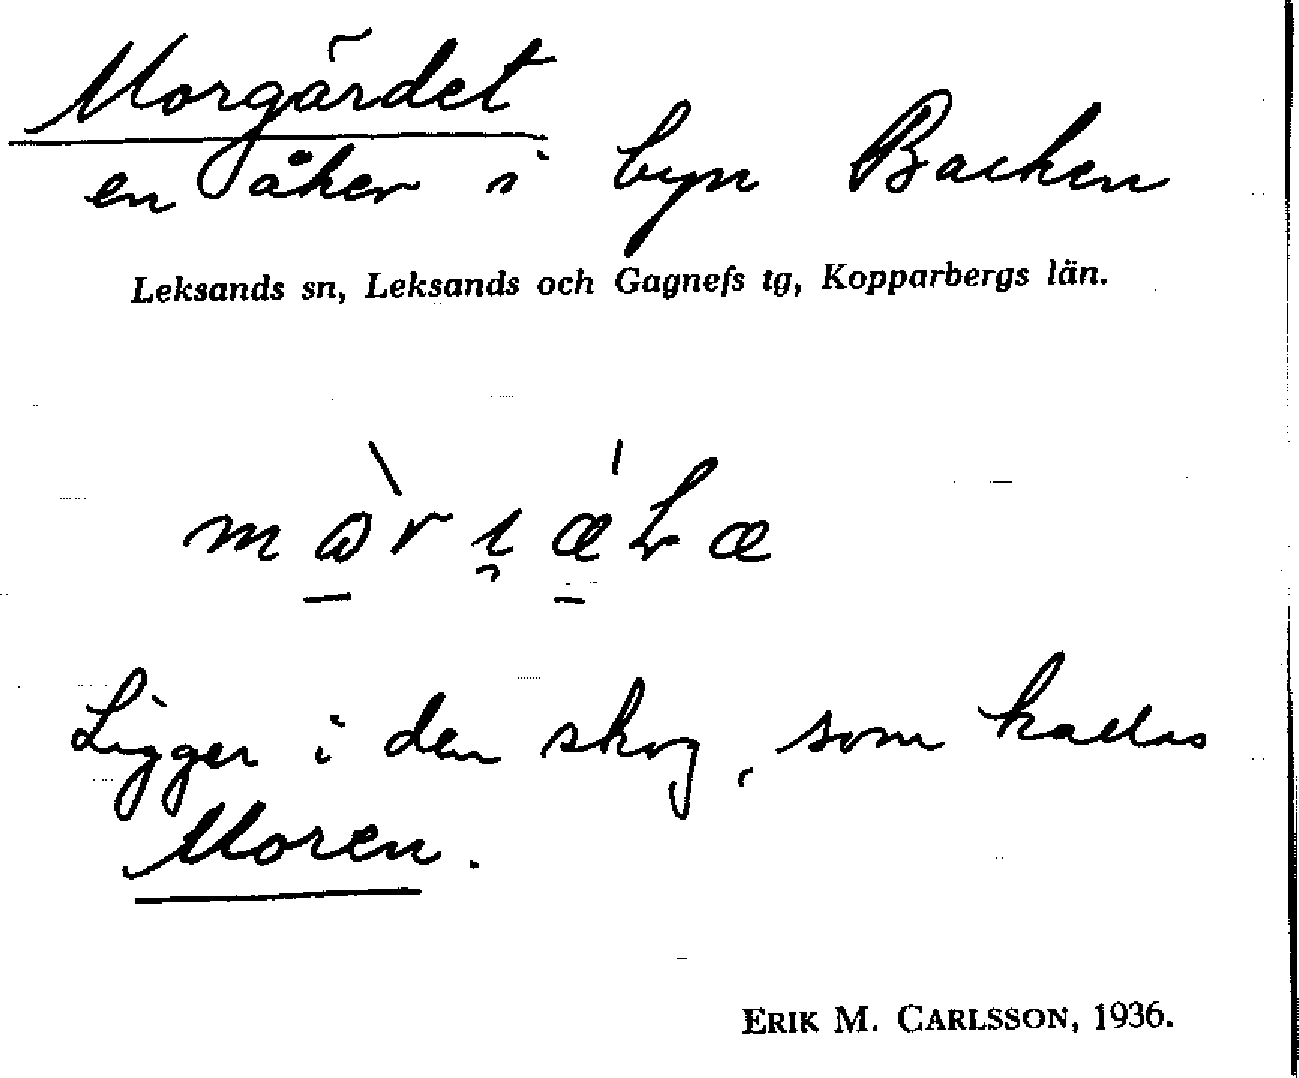 Morgärdet
en åker i byn Backen
Leksands sn, Leksands och Gagnefs tg, Kopparbergs län.
Ligger i den skog, som kallas
Moren.
ERIK M. CARLSSON, 1936.